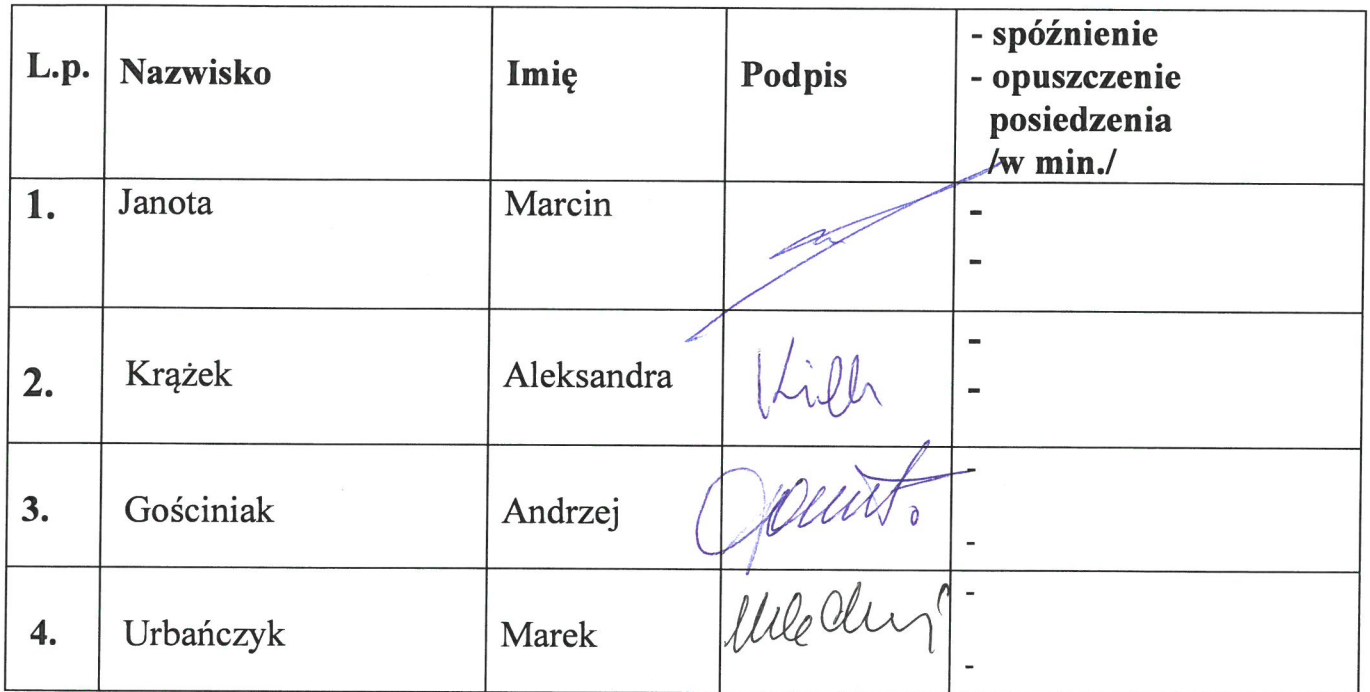 L.p. Nazwisko Imię Podpis - spóźnienie
- opuszczenie
posiedzenia
/w min./
1. Janota Marcin -
-
2. Krążek Aleksandra -
-
3. Gościniak Andrzej -
-
4. Urbańczyk Marek -
-